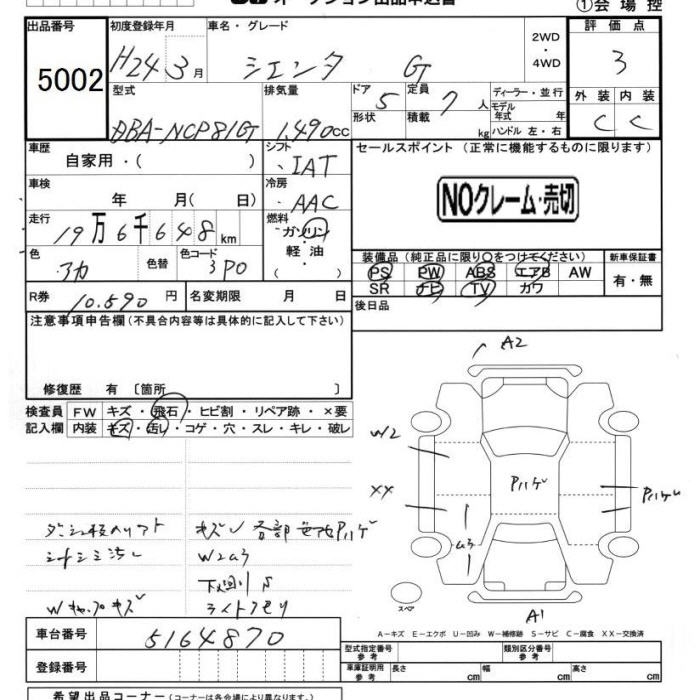 オークション出品申込書
①会場控
出品番号
5002
初度登録年月
H24 3月
車名・グレード
シエンタ G
2WD
・
4WD
評価点
3
型式
DBA-NCP81G
排気量
1.490cc
ドア
5
形状
定員
7人
積載
kg
ディーラー・並行
モデル
年式 年
ハンドル 左・右
外装 内装
C C
車歴
自家用・( )
シフト
IAT
セールスポイント (正常に機能するものに限ります)
車検
年 月 ( 日)
冷房
AAC
NOクレーム・売切
走行
19万6千648km
燃料
ガソリン
軽油
( )
色
アカ
色替
色コード
3P0
装備品 (純正品に限り○をつけてください)
PS PW ABS エアB AW
SR ナビ TV カワ
新車保証書
有・無
R券
10.590円
名変期限 月 日
後日品
注意事項申告欄(不具合内容等は具体的に記入して下さい)
修復歴 有 〔箇所 〕
検査員
記入欄
FW キズ・飛石・ヒビ割・リペア跡・×要
内装 キズ・汚レ・コゲ・穴・スレ・キレ・破レ
シートシミ汚レ
W2ム3
下廻りS
ライトクモリ
A2
W2
XX
Pハゲ
Pハゲ
ム3
スペア
A1
A−キズ E−エクボ U−凹み W−補修跡 S−サビ C−腐食 XX−交換済
車台番号
5164870
登録番号
型式指定番号
参考
類別区分番号
参考
車庫証明用
参考
長さ cm 幅 cm 高さ cm
希望出品コーナー (コーナーは各会場により異なります。)